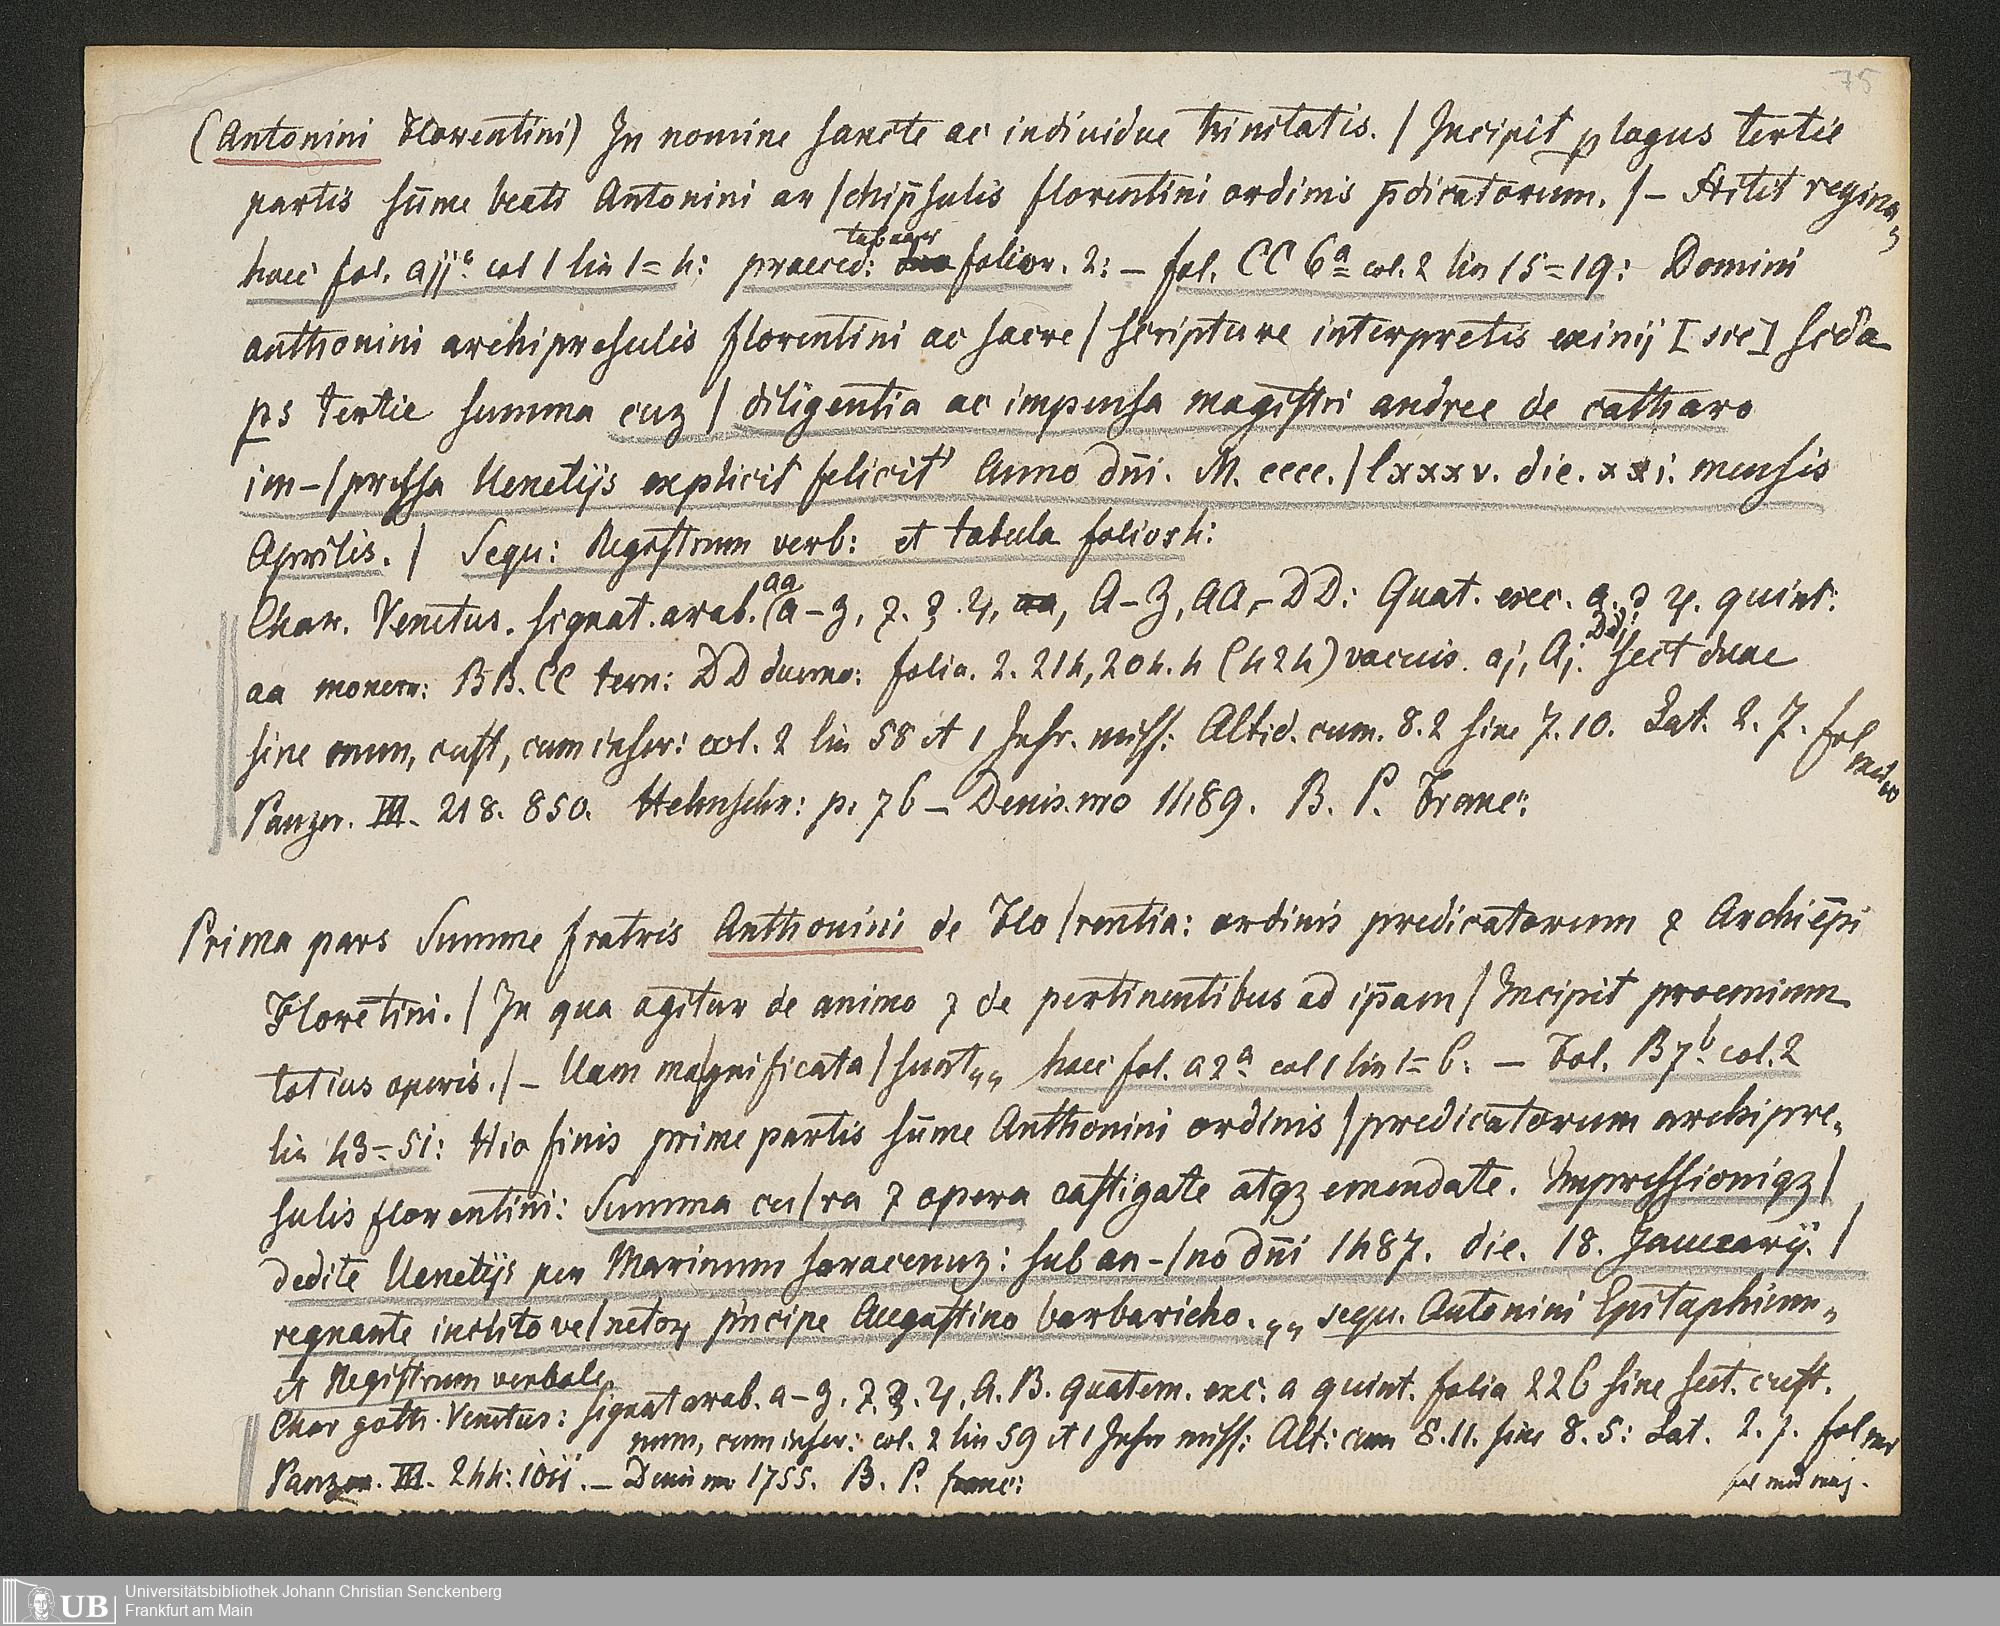 75
(Antonini Florentini) In nomine sancte ac indiuidue trinitatis. / Incipit plogus tertie
partis sūme beati Antonini ar / chip̄sulis florentini ordinis p̄dicatorum. / – Astitit regina„
haec fol. aij a col 1 lin 1=4: praeced: tab folior. 2: – fol. CC 6a col. 2 lin 15=19: Domini
anthonini archipresulis florentini ac sacre / scripture interpretis eximij [sic] scda
ps tertie summa cuz / diligentia ac impensa magistri andree de catharo
im-/pressa Uenetijs explicit felicit' Anno dn̄i. M. cccc. / lxxxv. die. xxi. mensis
Aprilis. / Sequ: Registrum verb: et tabula folior:
Char. Venetus. signat. arab. aa (a–z, A–Z, AA–DD: Quat. exc. a. quint:
aa monern: BB. CC tern: DD duern: folia. 2. 214, 204. 4 (424) vacuis. aj, Aj. DDj: sect duae
sine num, cust, cum inscr: col. 2 lin 58 et 1 Inscr. miss: Altid. cum. 8.2 sine 7.10. Lat. 2. 7. fol med
Panzer. III. 218. 850. Helmschr: p. 76 – Denis. nro 1489. B. P. Franc:
Prima pars Summe fratris Anthonini de Flo / rentia: ordinis predicatorum & Archiep̄i
Florētini. / In qua agitur de anima & de pertinentibus ad ip̄am / Incipit proemium
totius operis. / – Uam magnificata / sunt„„ haec fol. a2a col 1 lin 1=6: – Fol. B7b col. 2
lin 43=51: Hic finis prime partis sūme Anthonini ordinis / predicatorum archipre„
sulis florentini: Summa cu / ra & opera castigate atqz emendate. Impressioniqz /
dedite Uenetijs per Marinum saracenuz: sub an-/no dn̄i 1487. die. 18. Januarij. /
regnante inclito ve / netor p'ncipe Augustino barbaricho.„„ sequ. Antonini Epitaphium„
et Registrum verbale
Char goth. Venetus: signat arab. a–z. A. B. quatern. exc. a quint. folia 226 sine sect. cust.
num, cum inscr: col. 2 lin 59 et 1 Inscr miss: Alt: cum 8.11. sine 8.5: Lat. 2. 7. fol
Panzer. III. 244: – Denis nro 1755. B. P. franc:
fol med maj.
UB
Universitätsbibliothek Johann Christian Senckenberg
Frankfurt am Main